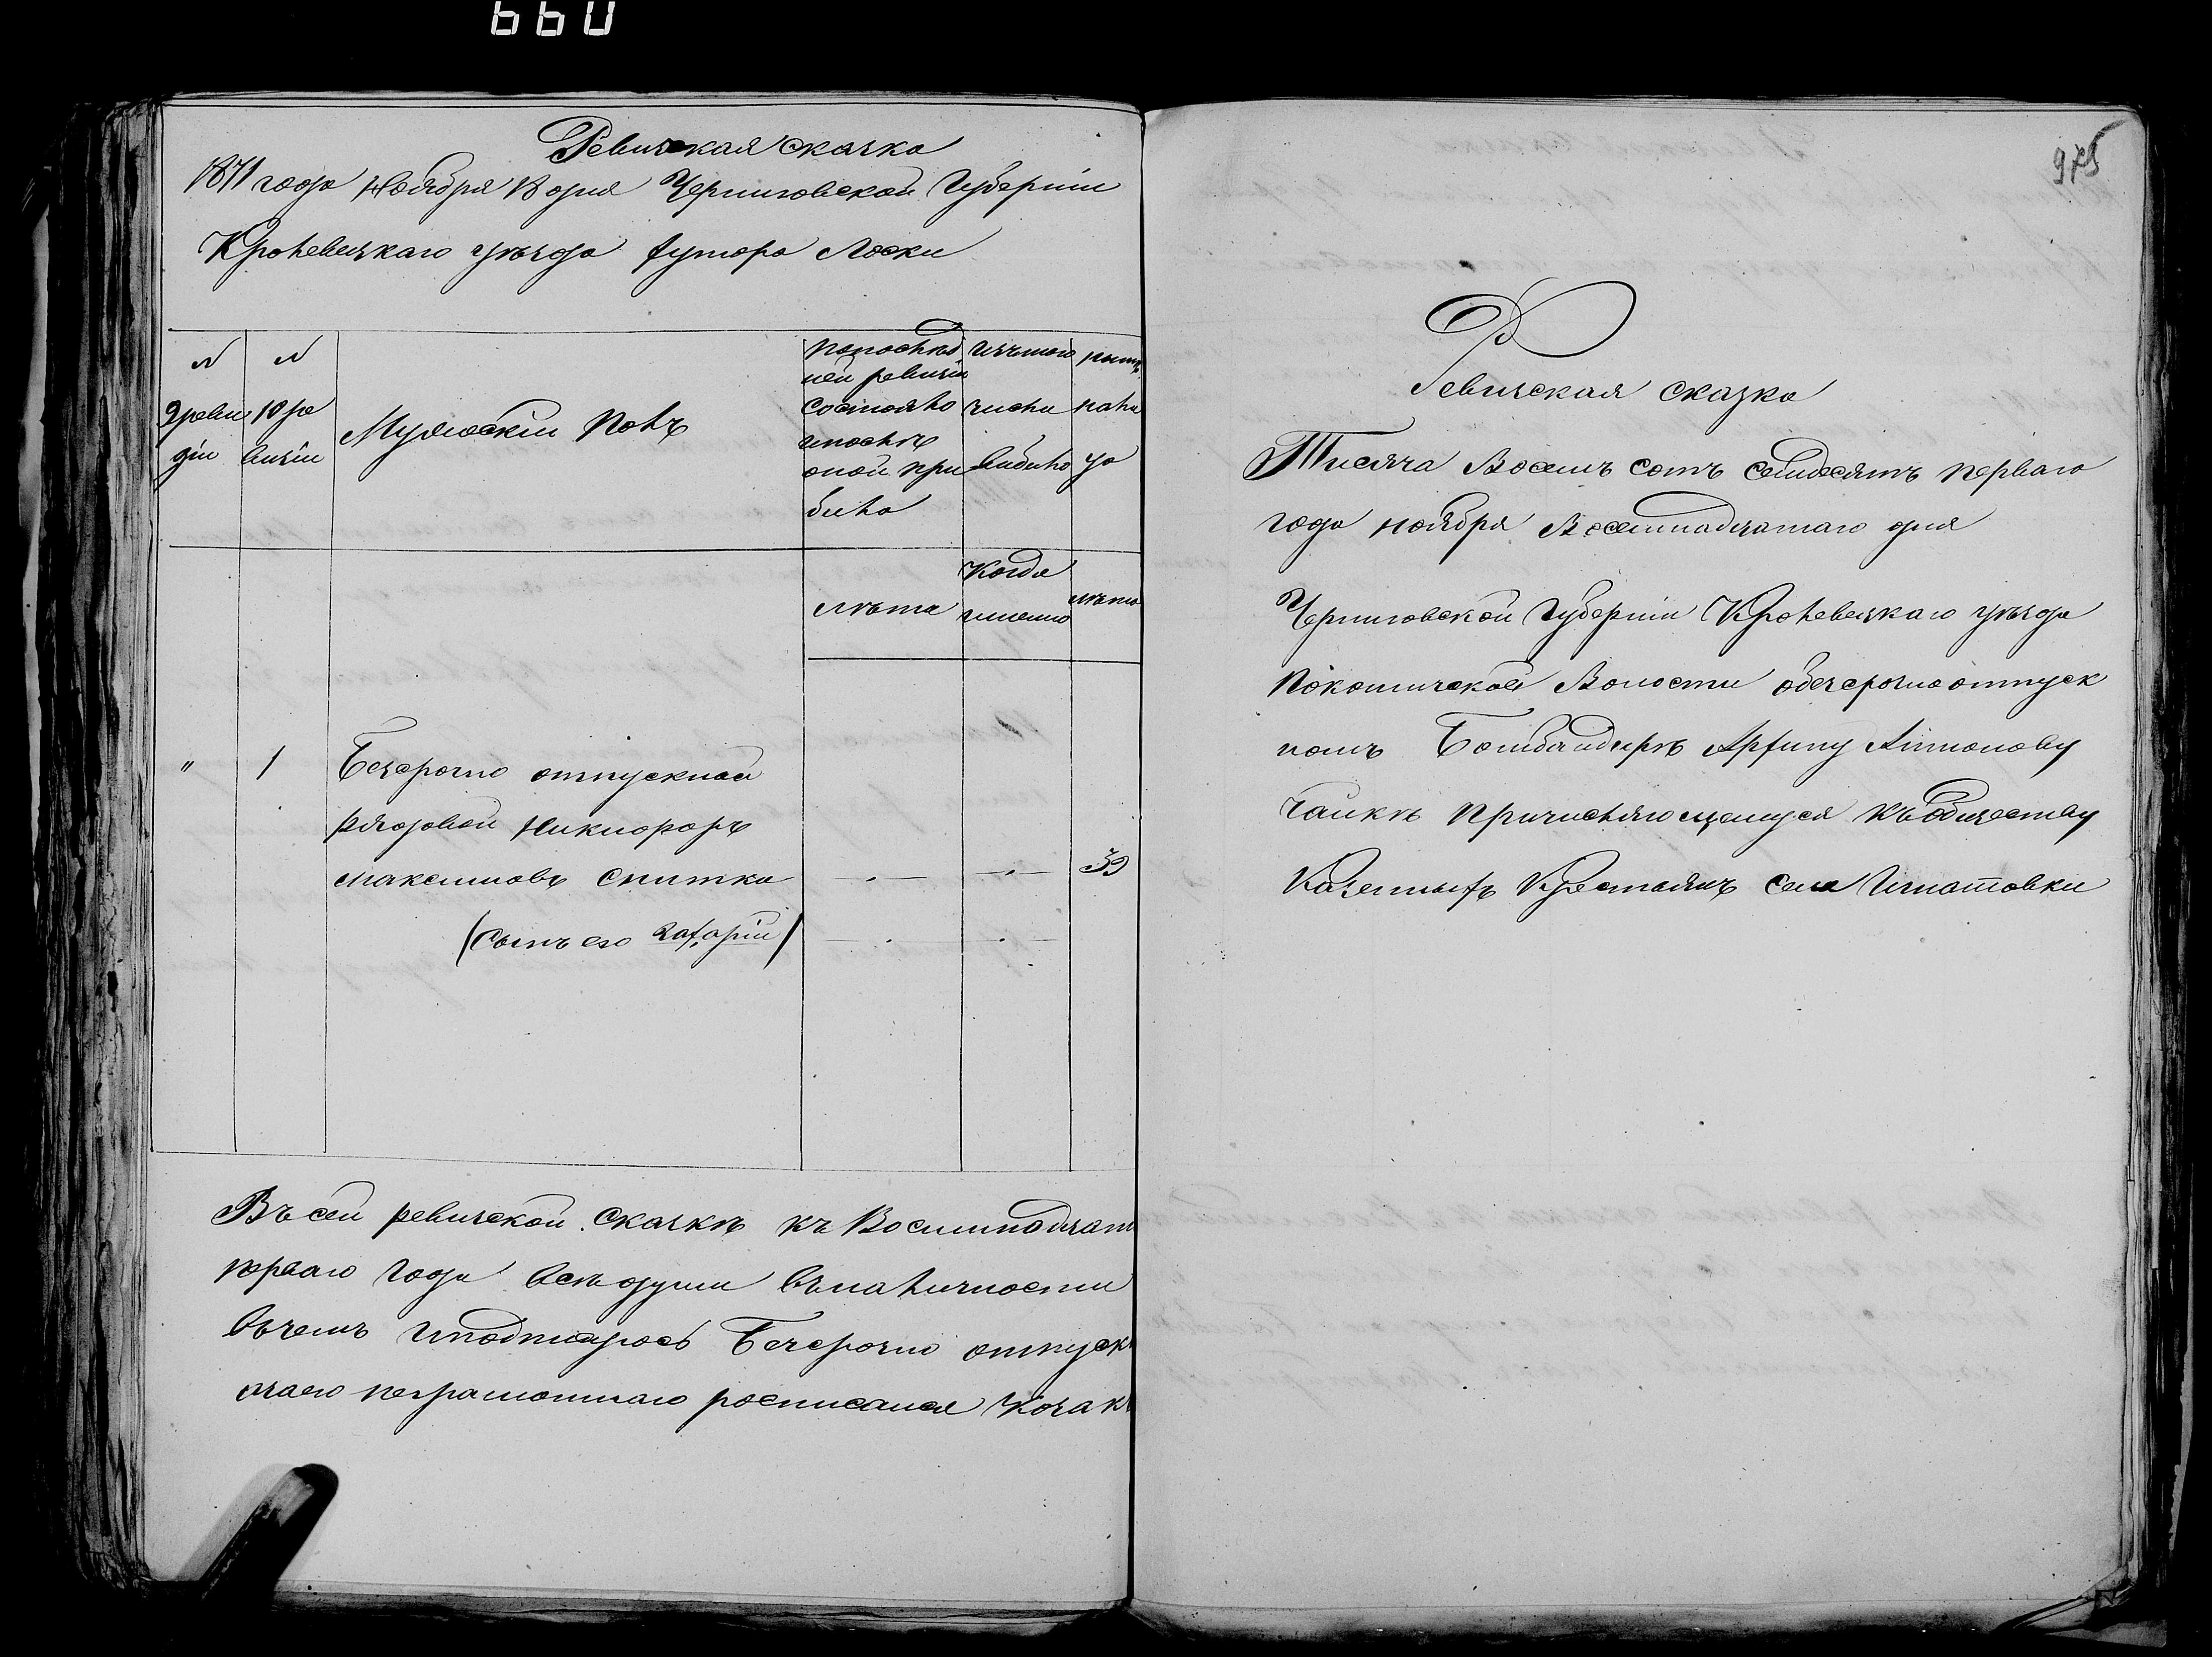 660
Ревизская сказка
1871 года Ноября 18 дня Черниговской Губерніи
Кролевецкаго уѣзда хутора Лоски
N
9 реви
діи
N
10 ре
визіи
Мужескій полъ
по послѣд
ней ревизіи
состояло
и послѣ
оной при
было
изъ того
числа
выбыло
ныт
нали
цо
лѣта
Когда
именно
лѣта
" 1 Безсрочно отпускной
рядовой Никифоръ
Максимовъ Спитка 39
(сынъ его Захарій)
Въ сей ревизской сказкѣ къ Восимнадцати
перваго года всѣ души въ наличности
въ чемъ и подписуюсь Безсрочно отпуск
неграмотнаго росписался Козак
975
Ревизская сказка
Тисяча Восемъ сотъ семидесятъ перваго
года ноября Восемнадцатаго дня
Черниговской Губерніи Кролевецкаго уѣзда
Покошичской Волости о безсрочно отпуск
номъ Бомбандирѣ Архипу Антонову
Чайкѣ причисляющемуся къ обществу
Казенныхъ Крестьянъ села Игнатовки